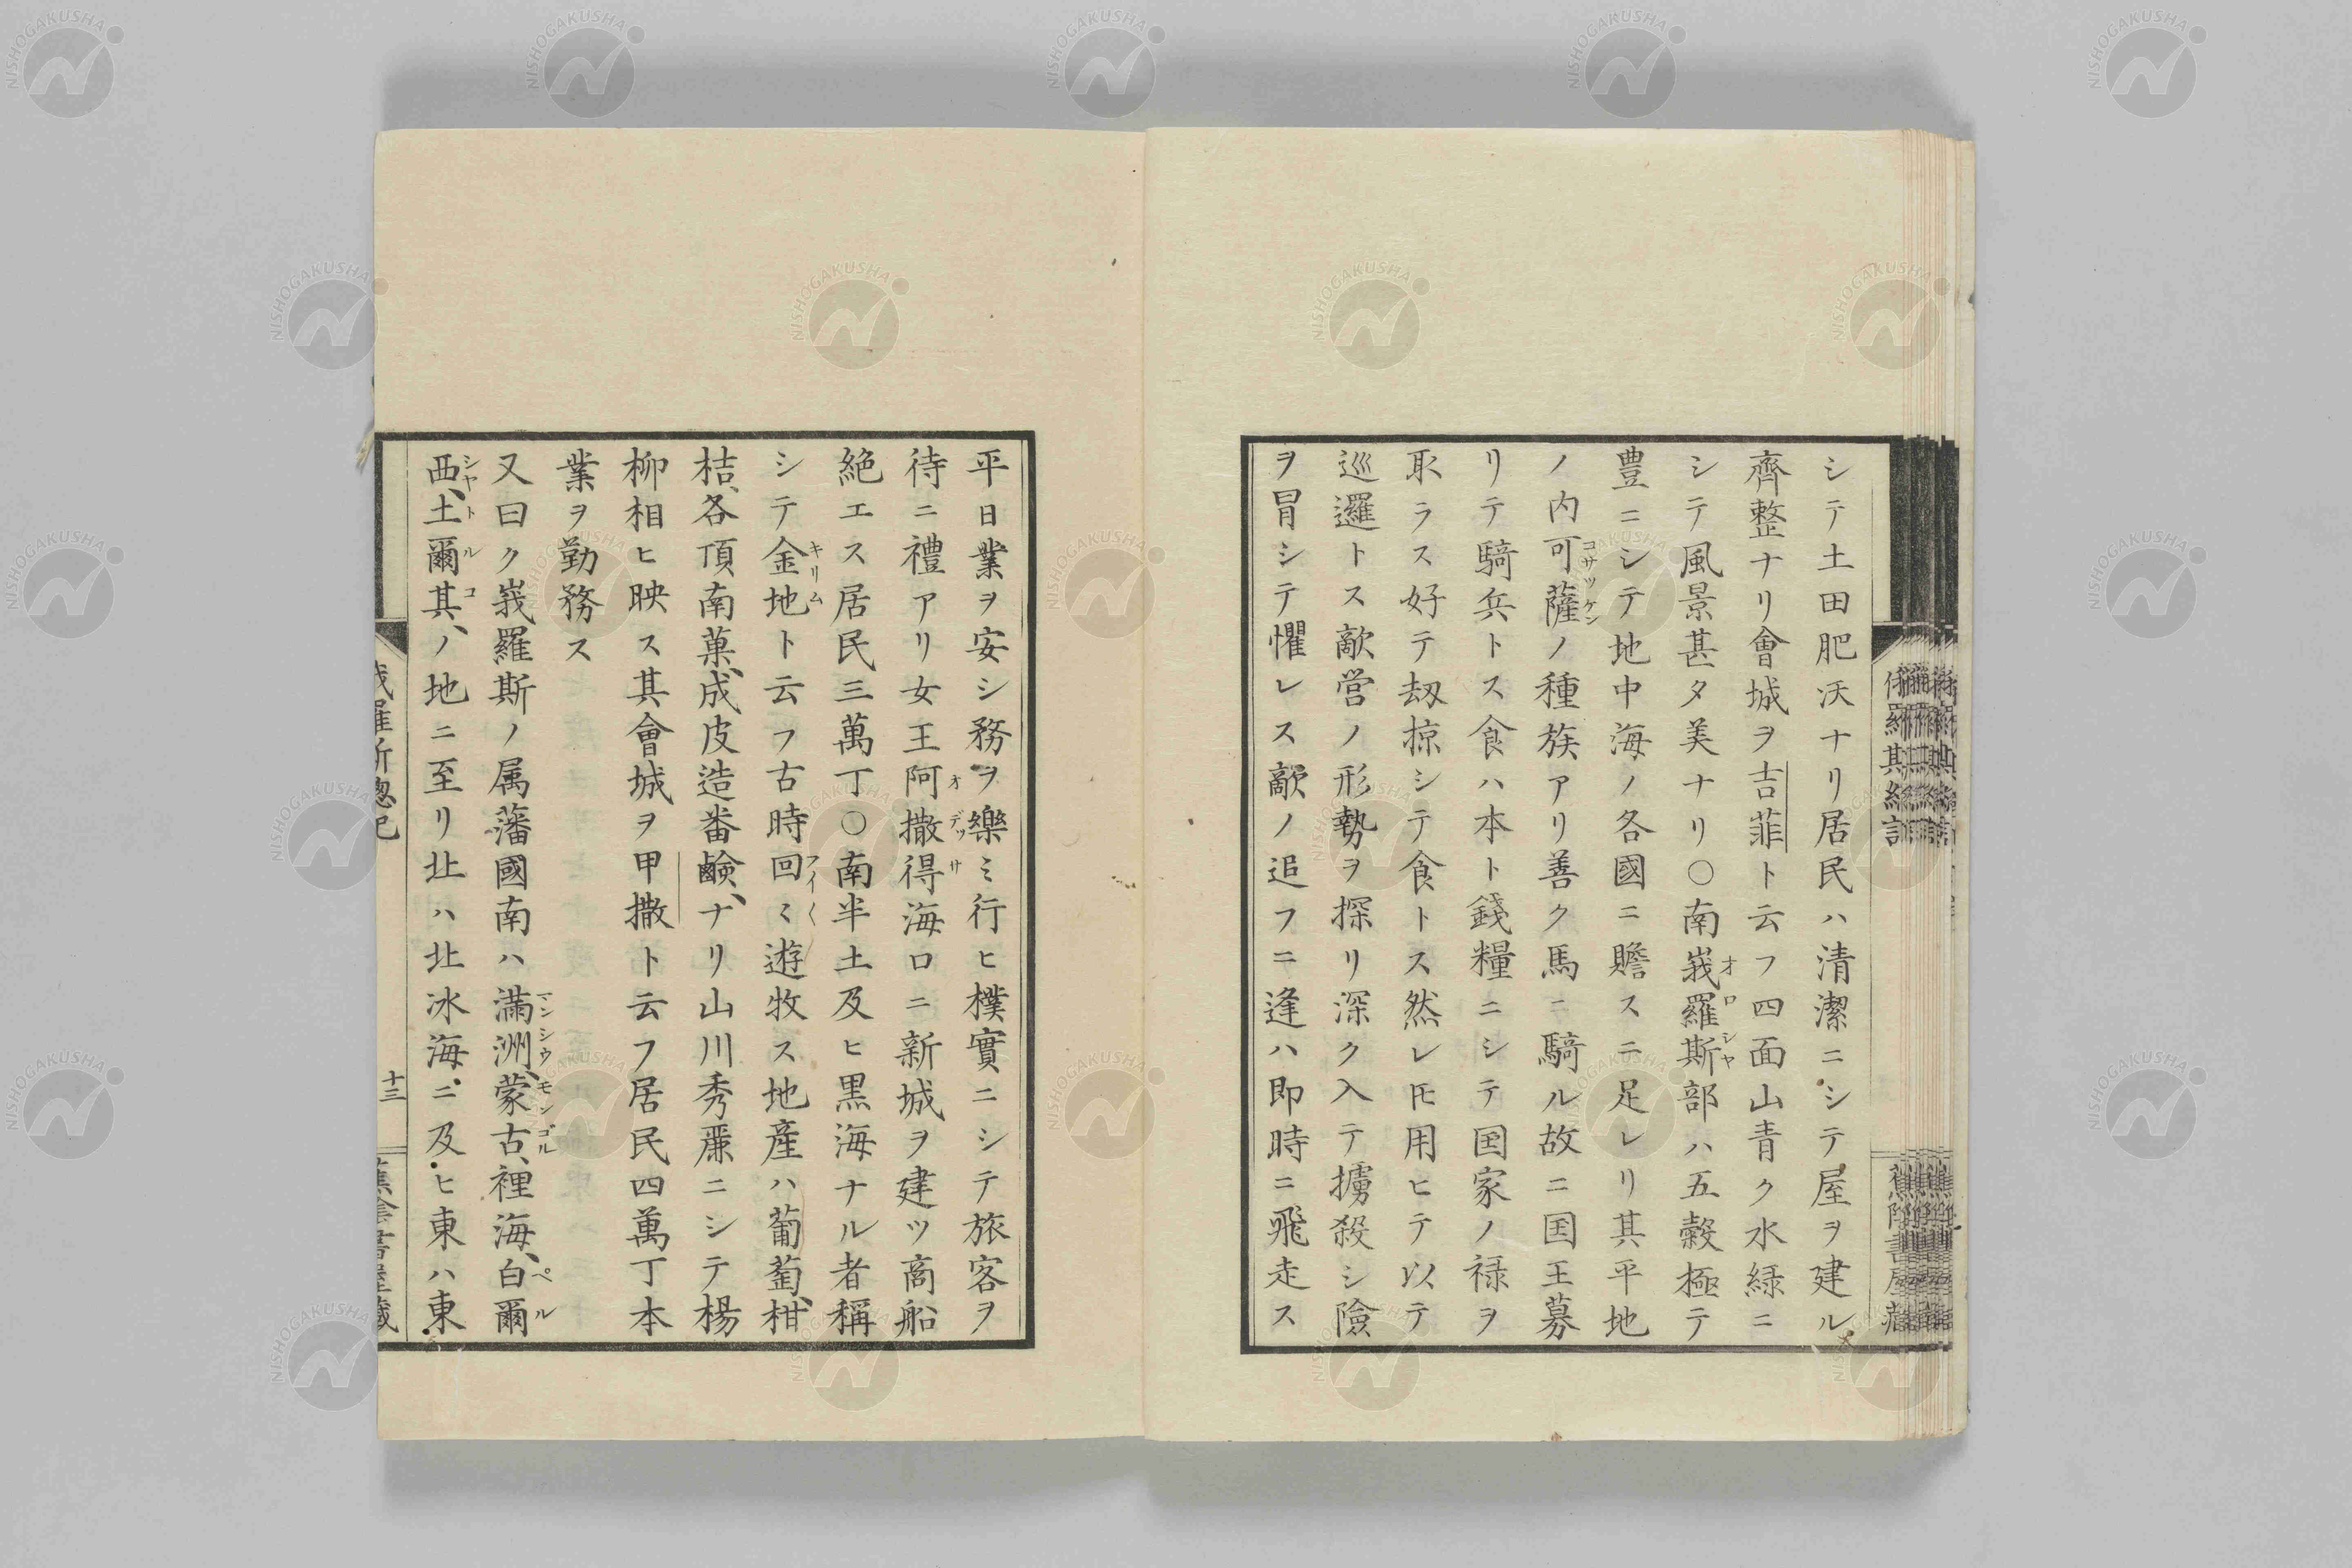 シテ土田肥沃ナリ居民ハ清潔ニシテ屋ヲ建ル
齊整ナリ會城ヲ吉菲ト云フ四面山青ク水緑ニ
シテ風景甚タ美ナリ〇南峩羅斯部ハ五穀極テ
オロシヤ
豊ニシテ地中海ノ各國ニ贍スニ足レリ其平地
ノ内可薩ノ種族アリ善ク馬ニ騎ル故ニ国王募
コサッケン
リテ騎兵トス食ハ本ト錢糧ニシテ国家ノ禄ヲ
取ラス好テ刧掠シテ食トス然レ𪜈用ヒテ以テ
巡邏トス敵営ノ形勢ヲ探リ深ク入テ擄殺シ險
ヲ冒シテ懼レス敵ノ追フニ逢ハ即時ニ飛走ス
平日業ヲ安シ務ヲ樂ミ行ヒ樸實ニシテ旅客ヲ
待ニ禮アリ女王阿撒得海口ニ新城ヲ建ツ商船
オデッサ
絶エス居民三萬丁〇南半土及ヒ黒海ナル者稱
シテ金地ト云フ古時回〻遊牧ス地産ハ葡萄、柑
キリム
フイ〱
桔、各頂南菓、成皮造番鹸、ナリ山川秀㢘ニシテ楊
柳相ヒ映ス其會城ヲ甲撒ト云フ居民四萬丁本
業ヲ勤務ス
又曰ク峩羅斯ノ属藩國南ハ滿洲、蒙古、裡海、白爾
マンシウ
モンゴル
ペル
西、土爾其、ノ地ニ至リ北ハ北冰海ニ及ヒ東ハ東
シヤ
トルコ
峩羅斯總記
十三
蕉陰書屋藏
NISHOGAKUSHA